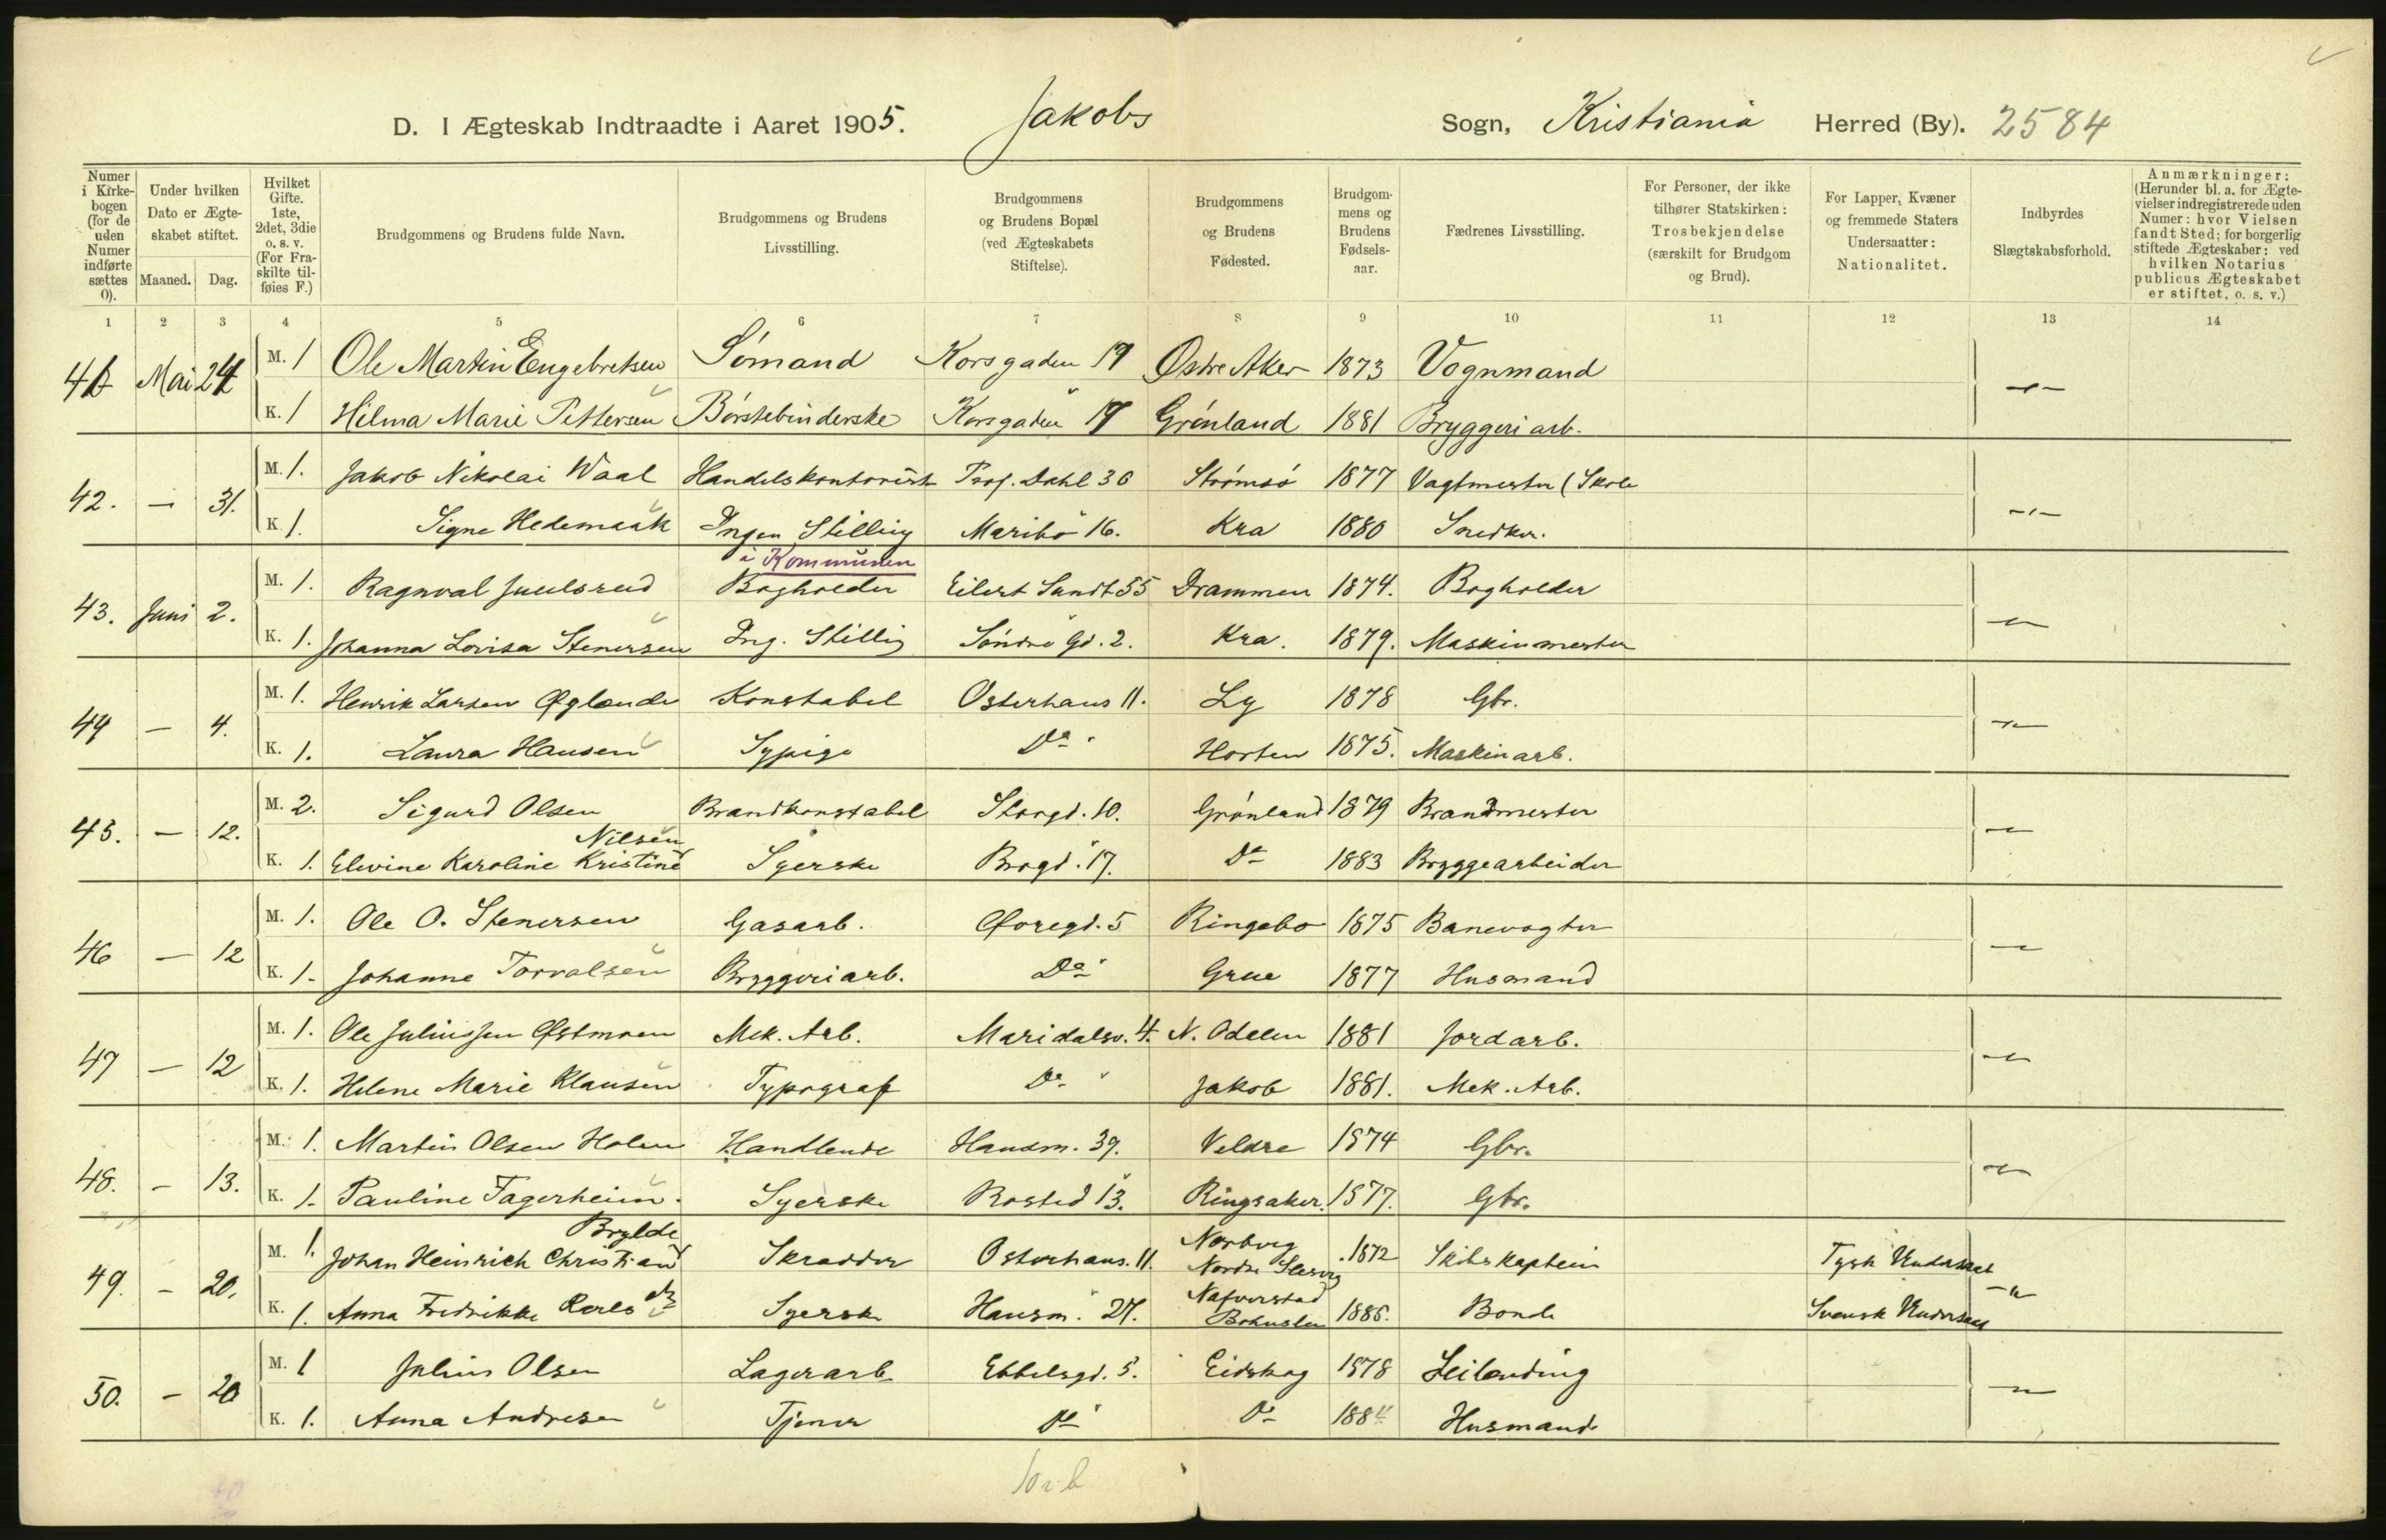 D. I Ægteskab Indtraadte i Aaret 1905. Jakobs Sogn, Kristiania Herred (By). 2584
Numer i Kirkebogen (for de uden Numer indførte sættes 0).
Under hvilken Dato er Ægteskabet stiftet.
Maaned. Dag.
Hvilket Gifte. 1ste, 2det, 3die o. s. v. (For Fraskilte tilføies F.)
Brudgommens og Brudens fulde Navn.
Brudgommens og Brudens Livsstilling.
Brudgommens og Brudens Bopæl (ved Ægteskabets Stiftelse).
Brudgommens og Brudens Fødested.
Brudgommens og Brudens Fødselsaar.
Fædrenes Livsstilling.
For Personer, der ikke tilhører Statskirken: Trosbekjendelse (særskilt for Brudgom og Brud).
For Lapper, Kvæner og fremmede Staters Undersaatter: Nationalitet.
Indbyrdes Slægtskabsforhold.
Anmærkninger: (Herunder bl. a. for Ægtevielser indregistrerede uden Numer: hvor Vielsen fandt Sted; for borgerlig stiftede Ægteskaber: ved hvilken Notarius publicus Ægteskabet er stiftet, o. s. v.)
1 2 3 4 5 6 7 8 9 10 11 12 13 14
Mai 24 M. 1 Ole Martin Engebretsen Sømand Korsgaden 19 Østre Aker 1873 Vognmand
K. 1 Hilma Marie Pettersen Børstebinderske Korsgaden 19 Grønland 1881 Bryggeriarb.
42. — 31. M. 1. Jakob Nikolai Waal Handelskontorist Prof. Dahl 36 Strømsø 1877 Vagtmester (Skole
K. 1. Signe Hedemark Ingen Stilling Maribo 16. Kra 1880 Snedker.
i Kommunen
43. Juni 2. M. 1. Ragnval Juulsrud Bogholder Eilert Sundt 55 Drammen 1874. Bogholder
K. 1. Johanna Lovisa Stenersen Ing. Stillig Søndre Gd. 2. Kra. 1879. Maskinmester
44 — 4. M. 1. Henrik Larsen Øglænde Konstabel Osterhaus 11. Ly 1878 Gbr.
K. 1. Laura Hansen Sypige Do Horten 1875. Maskinarb.
45. — 12. M. 2. Sigurd Olsen Brandkonstabel Storgd. 10. Grønland 1879 Brandmester
Nilsen
K. 1. Elevine Karoline Kristine Syerske Brogd. 17. Do 1883 Bryggearbeider
46 — 12 M. 1. Ole O. Stenersen Gasarb. Øoregd. 5 Ringebo 1875 Banevogter
K. 1. Johanne Torvalsen Bryggeriarb. Do Grue 1877 Husmand
47 — 12 M. 1. Ole Juliussen Østmoen Mek. Arb. Maridalsv. 4. N. Odalen 1881 Jordarb.
K. 1. Helene Marie Klausen Typograf Do Jakob 1881. Mek. Arb.
48. — 13. M. 1. Martin Olsen Holen Handlende Hausm. 39. Veldre 1874 Gbr.
K. 1. Pauline Fagerheim. Syerske Rosted 13. Ringsaker. 1877. Gbr.
Brylde
49. — 20. M. 1. Johan Heinrich Christian Skrædder Osterhaus. 11. Norburg Nordre Slesvig 1872 Skibskaptein Tysk Undersaat
K. 1. Anna Fredrikke Karls Syerske Hausm. 27. Nafverstad Bohuslen 1886. Bonde Svensk Undersaat
50. — 20 M. 1 Julius Olsen Lagerarb Ebbelsgd. 5. Eidskog 1878 Leilænding
K. 1. Anna Andresen Tjener Do Do 1884 Husmand